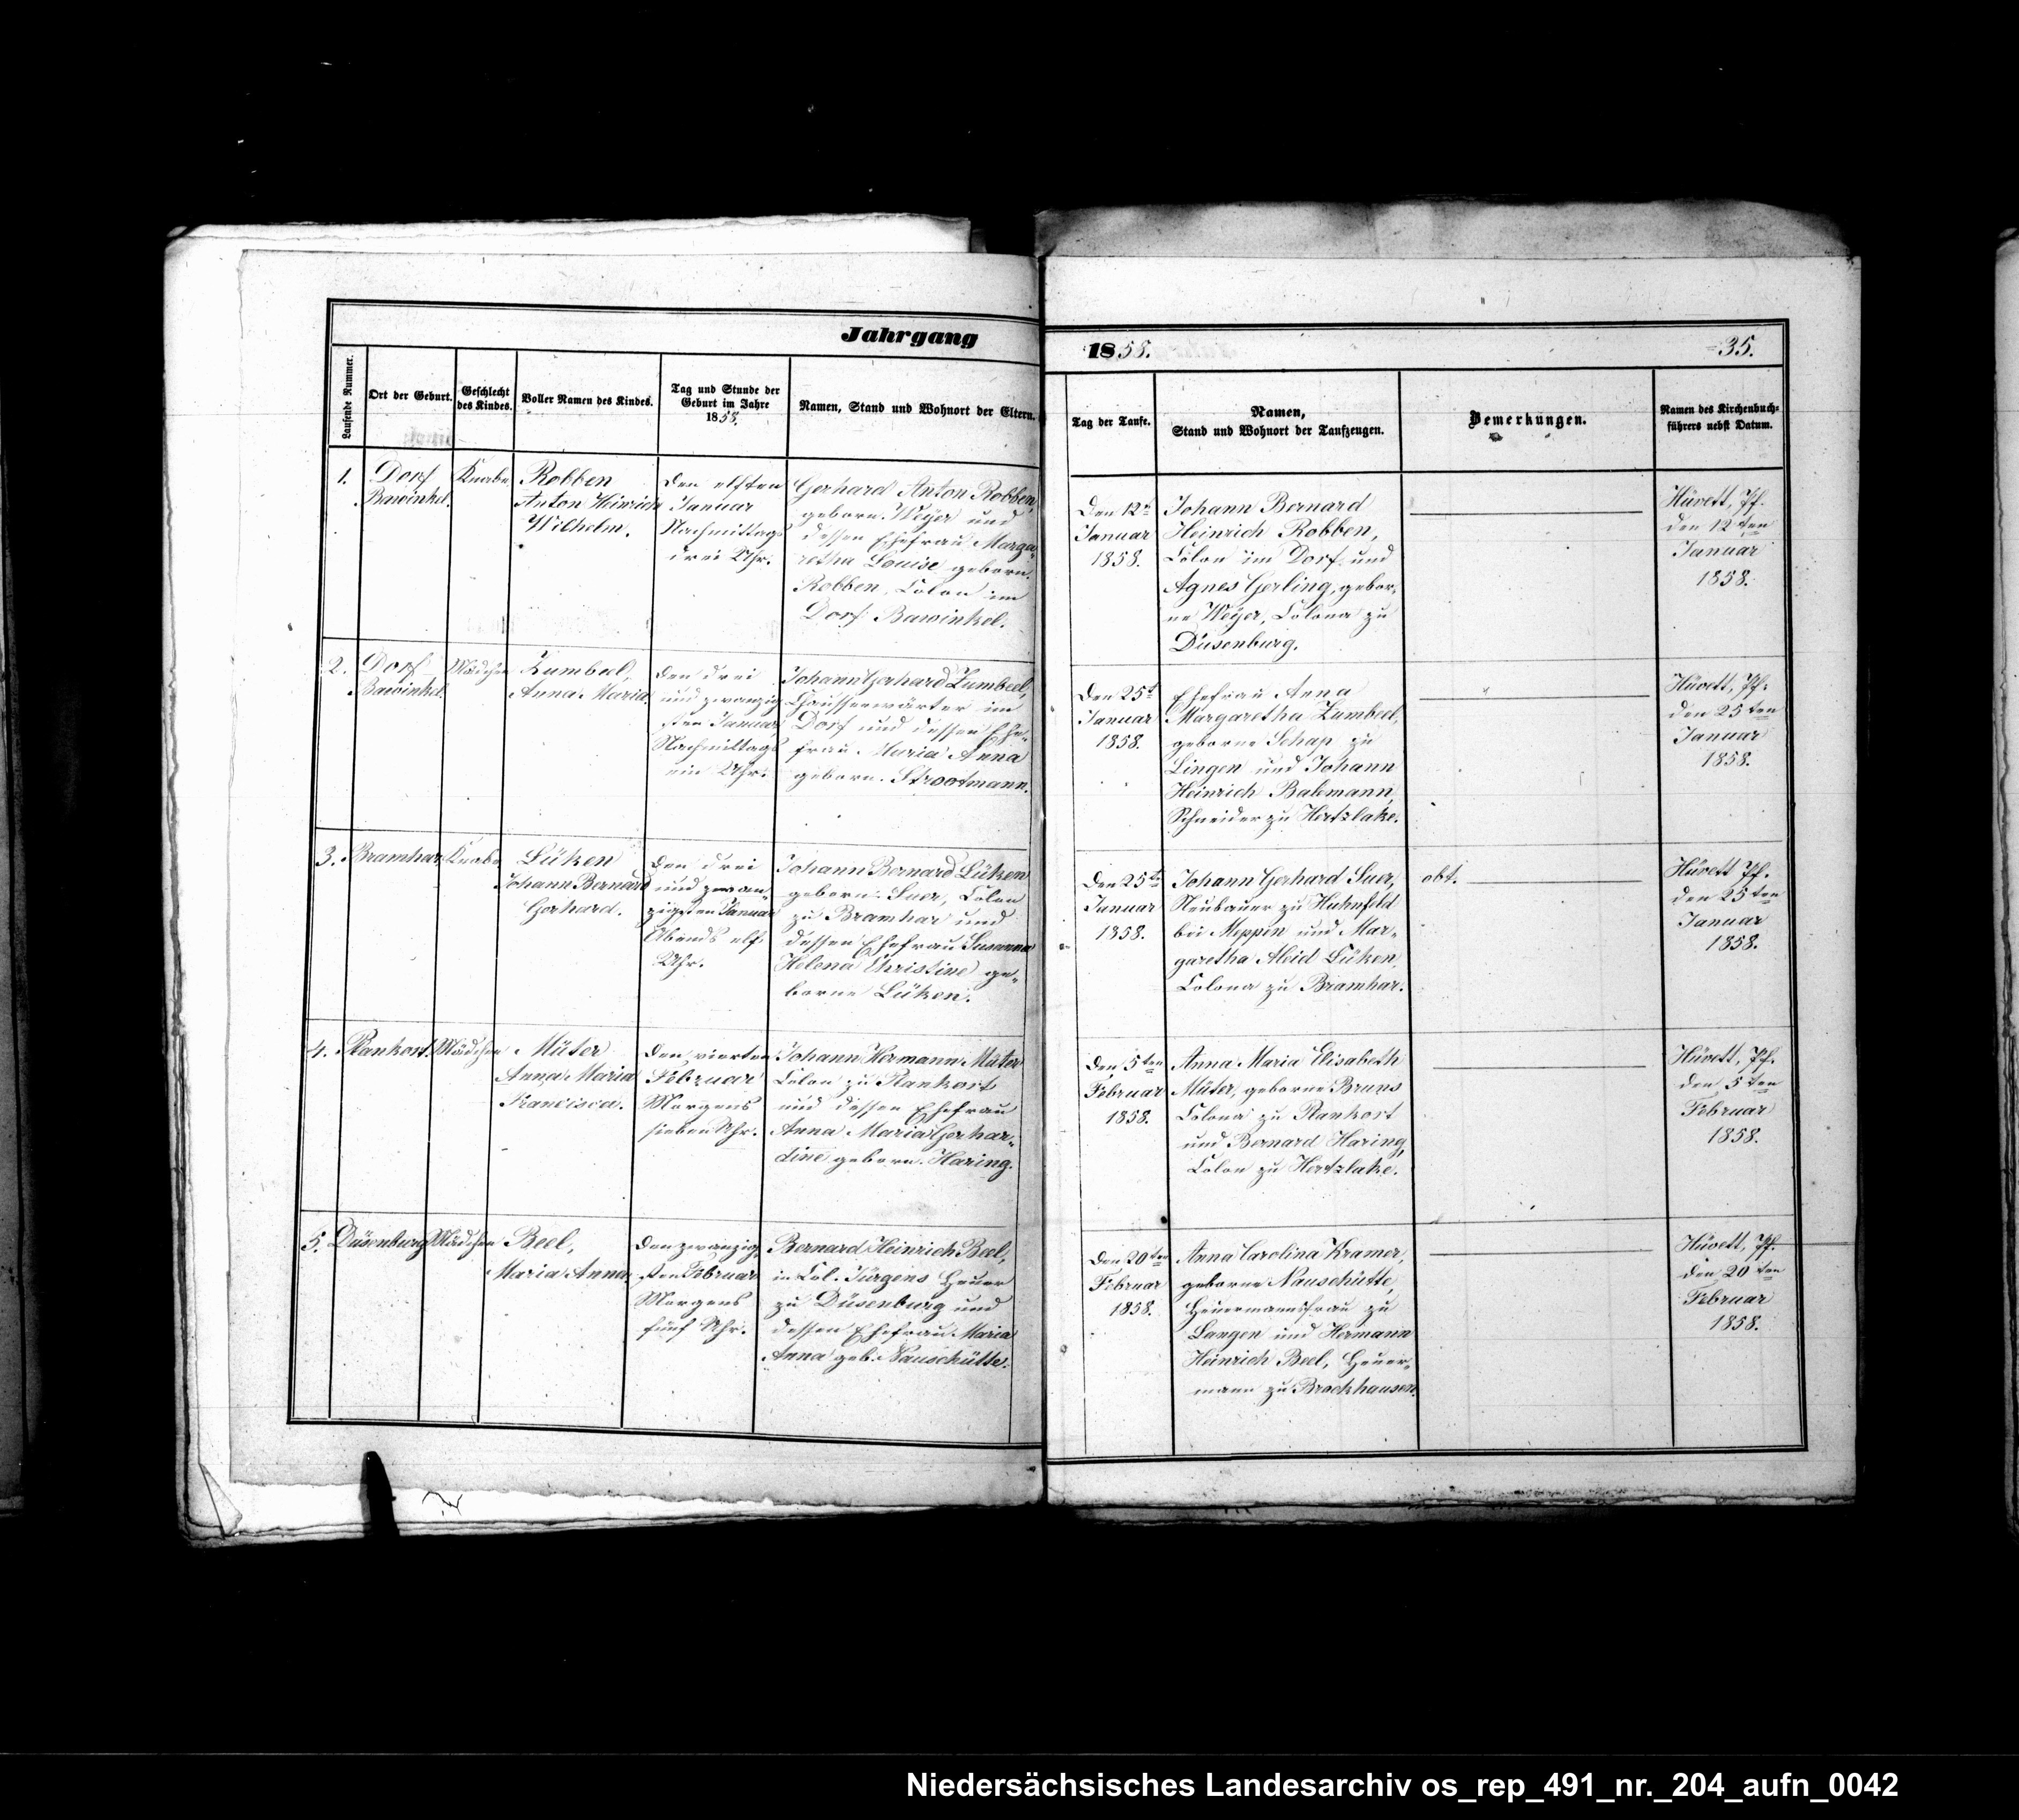 Jahrgang
1858.
35.
Laufende Nummer.
Ort der Geburt.
Geschlecht
des Kindes.
Voller Namen des Kindes.
Tag und Stunde der
Geburt im Jahre
1858.
Namen, Stand und Wohnort der Eltern.
Tag der Taufe.
Namen,
Stand und Wohnort der Taufzeugen.
Bemerkungen.
Namen des Kirchenbuch-
führers nebst Datum.
1.
Dorf
Bawinkel.
Knabe.
Robben
Anton Heinrich
Wilhelm.
Den elften
Januar
Nachmittags
drei Uhr.
Gerhard Anton Robben,
geborn. Weyer und
dessen Ehefrau Marga-
retha Louise geborn.
Robben, Colon im
Dorf Bawinkel.
Den 12t
Januar
1858.
Johann Bernard
Heinrich Robben,
Colon im Dorf und
Agnes Gerling, gebor-
ne Weyer, Colona zu
Düsenburg.
Hüvett, Pf.
den 12ten
Januar
1858.
2.
Dorf
Bawinkel.
Mädchen
Zumbeel,
Anna Maria.
Den drei
und zwanzig
sten Januar,
Nachmittags
ein Uhr.
Johann Gerhard Zumbeel,
Chausseewärter im
Dorf und dessen Ehe-
frau Maria Anna
geborn. Strootmann.
Den 25t
Januar
1858.
Ehefrau Anna
Margaretha Zumbeel,
geborne Schap zu
Lingen und Johann
Heinrich Bakmann,
Schneider zu Hertzlake.
Hüvett, Pf.
den 25ten
Januar
1858.
3.
Bramhar,
Knabe
Lüken
Johann Bernard
Gerhard.
Den drei
und zwan-
zigsten Januar
Abends elf
Uhr.
Johann Bernard Lüken
geborn. Suer, Colon
zu Bramhar und
dessen Ehefrau Susanna
Helena Christine ge-
borne Lüken.
Den 25t
Januar
1858.
Johann Gerhard Suer,
Neubauer zu Huhnfeld
bei Meppen und Mar-
garetha Aleid Lüken,
Colona zu Bramhar.
obt.
Hüvett Pf.
den 25ten
Januar
1858.
4.
Plankort.
Mädchen
Müter
Anna Maria
Francisca.
Den vierten
Februar
Morgens
sieben Uhr.
Johann Hermann Müter
Colon zu Plankort
und dessen Ehefrau
Anna Maria Gerhar-
dine geborn. Haring.
Den 5ten
Februar
1858.
Anna Maria Elisabeth
Müter, geborne Bruns
Colona zu Plankort
und Bernard Haring,
Colon zu Hertzlake.
Hüvett, Pf.
den 5ten
Februar
1858.
5.
Düsenburg
Mädchen
Beel,
Maria Anna.
Den zwanzig-
sten Februar
Morgens
fünf Uhr.
Bernard Heinrich Beel,
in Col. Jürgens Heuer
zu Düsenburg und
dessen Ehefrau Maria
Anna geb. Nauschütte.
Den 20ten
Februar
1858.
Anna Carolina Kramer,
geborne Nauschütte,
Heuermannsfrau zu
Langen und Hermann
Heinrich Beel, Heuer-
mann zu Brockhausen.
Hüvett, Pf.
den 20ten
Februar
1858.
Niedersächsisches Landesarchiv os_rep_491_nr._204_aufn_0042